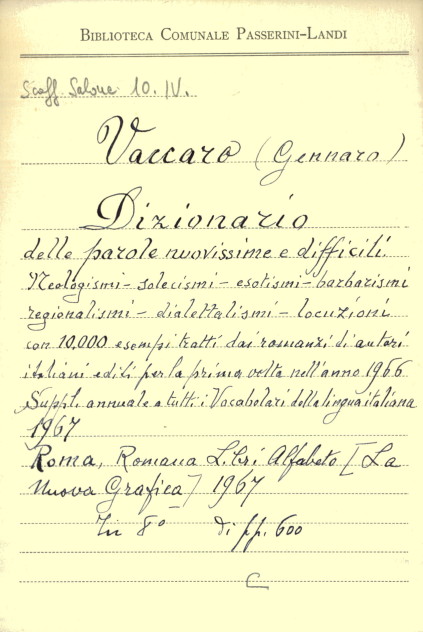 BIBLIOTECA COMUNALE PASSERINI-LANDI
Scaff. Salone 10. IV.
Vaccaro (Gennaro)
Dizionario
delle parole nuovissime e difficili.
Neologismi - solecismi - esotismi - barbarismi
regionalismi - dialettalismi - locuzioni
con 10.000 esempi tratti dai romanzi di autori
italiani editi per la prima volta nell'anno 1966
Suppl. annuale a tutti i Vocabolari della lingua italiana
1967
Roma, Romana Libri Alfabeto [La
Nuova Grafica] 1967
In 8° di pp. 600
C